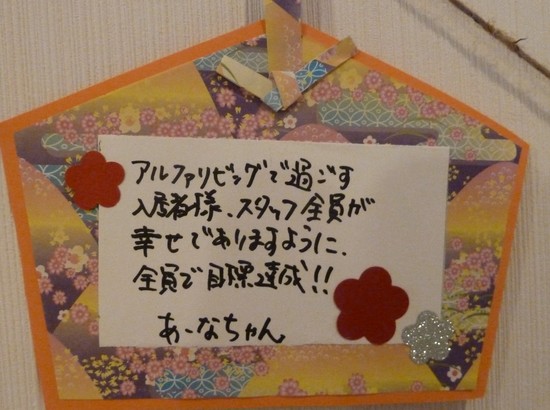 アルファリビングで過ごす
入居者様、スタッフ全員が
幸せでありますように、
全員で目標達成!!
あーなちゃん